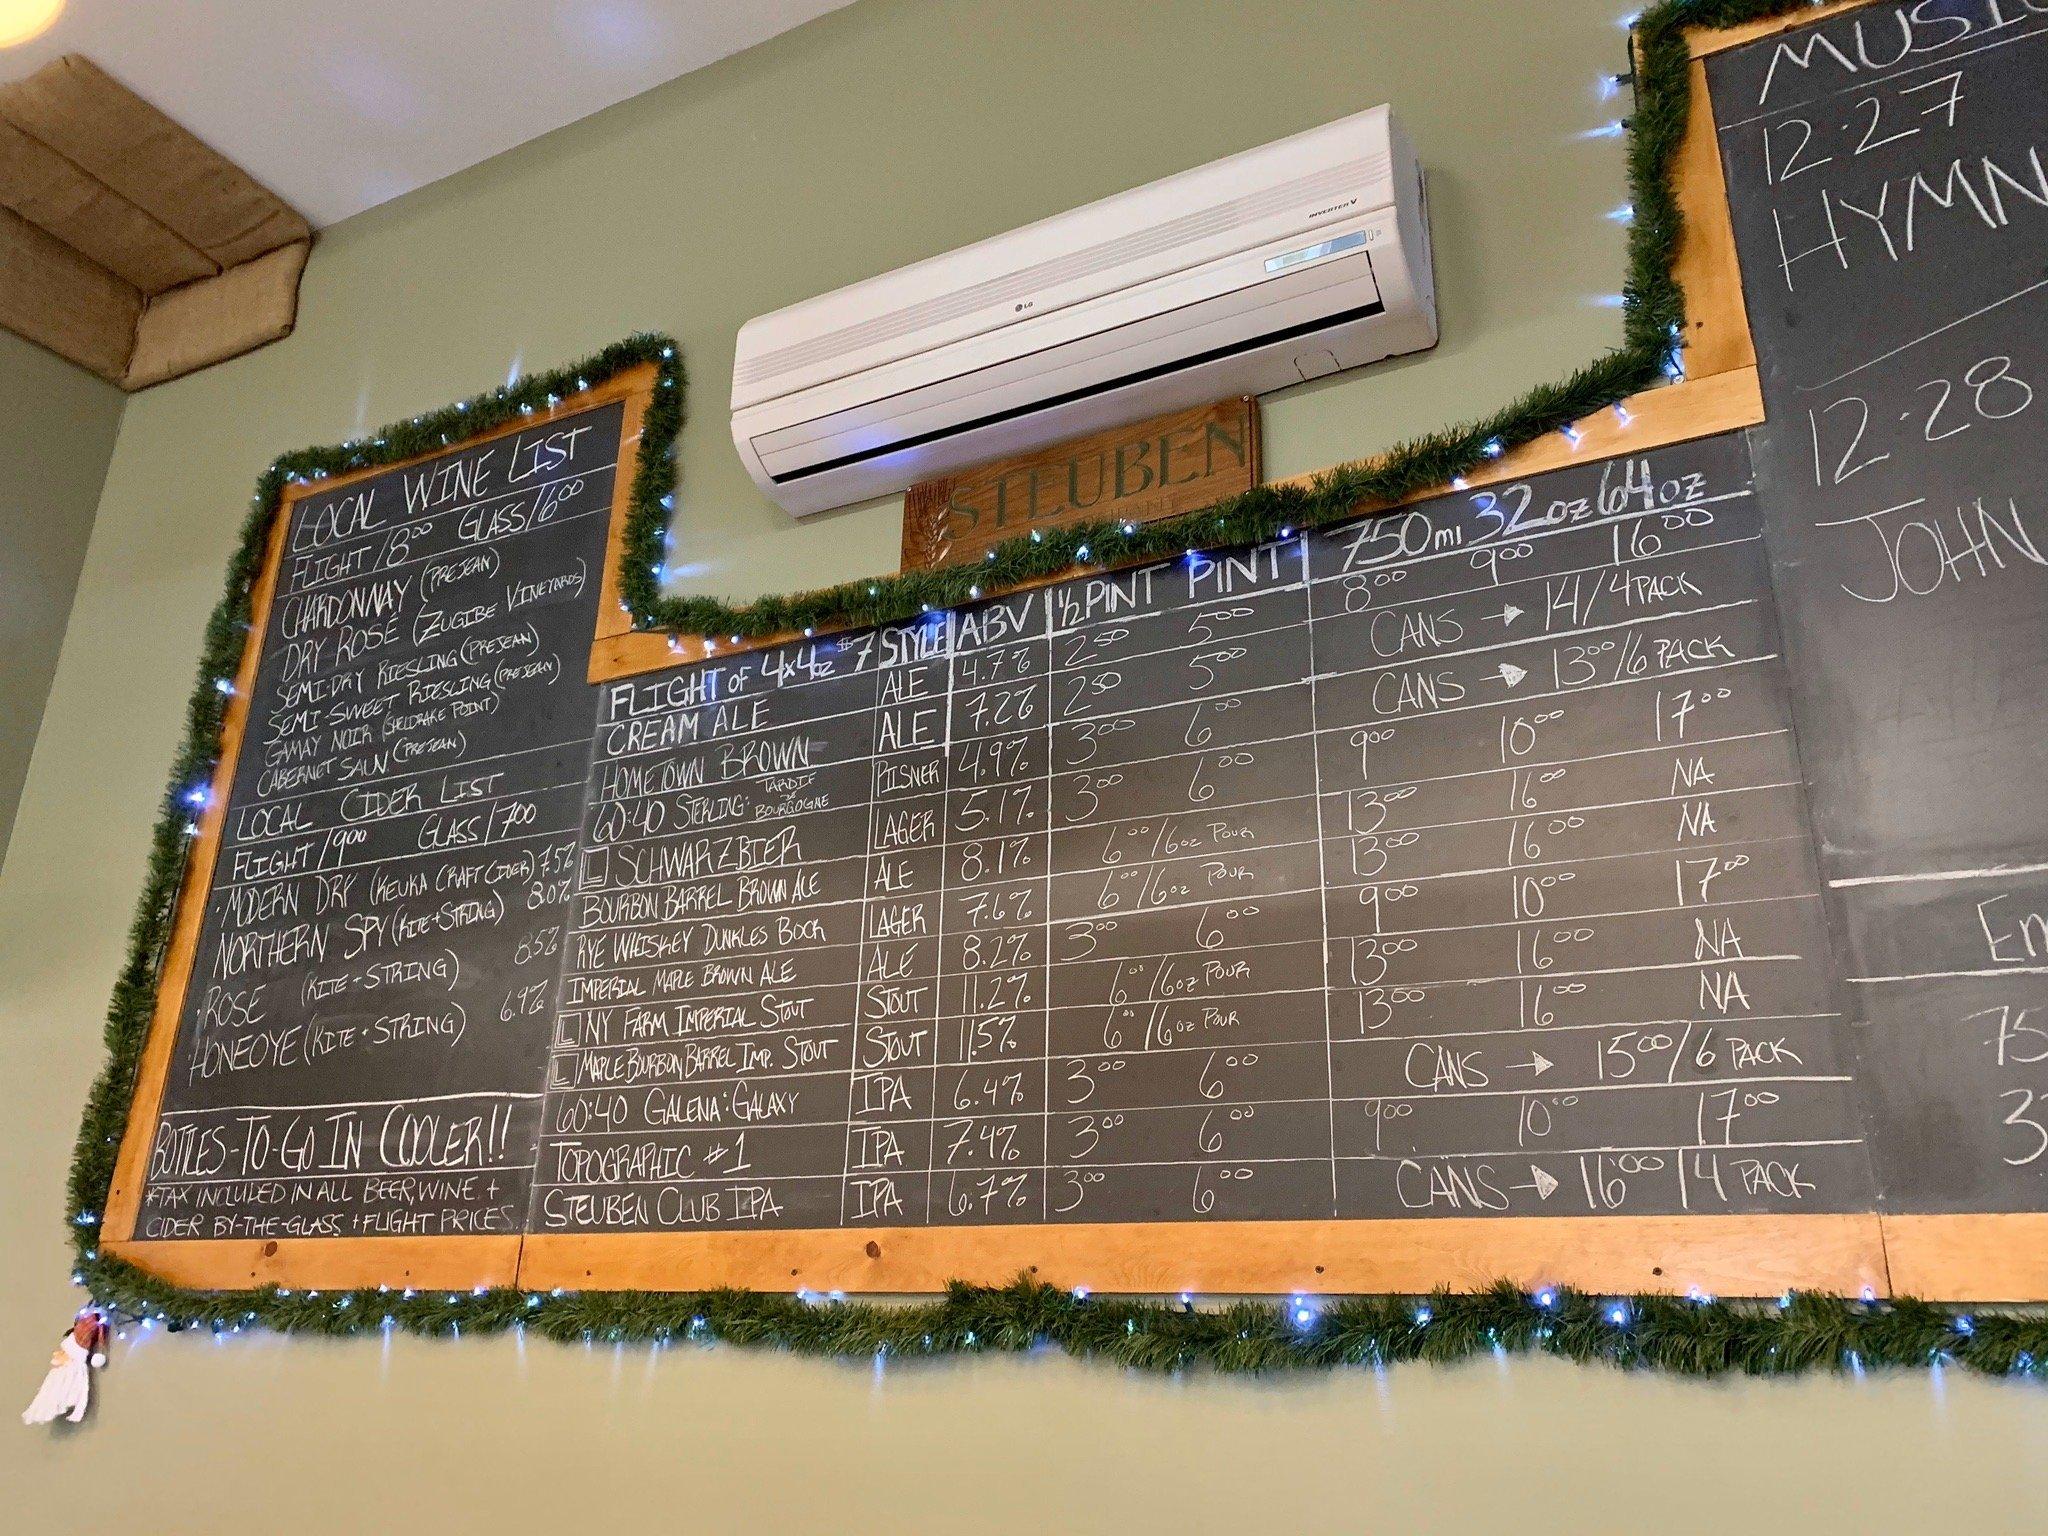 LOCAL WINE LIST
FLIGHT/8⁰⁰ GLASS/6⁰⁰
CHARDONNAY (PREJEAN)
DRY ROSÉ (ZUGIBE VINEYARDS)
SEMI-DRY RIESLING (PREJEAN)
SEMI-SWEET RIESLING (PREJEAN)
GAMAY NOIR (SHELDRAKE POINT)
CABERNET SAUV (PREJEAN)
LOCAL CIDER LIST
FLIGHT/9⁰⁰ GLASS/7⁰⁰
·MODERN DRY (KEUKA CRAFT CIDER) 7.5%
NORTHERN SPY (KITE+STRING) 8.0%
·ROSE (KITE+STRING) 8.5%
·HONEOYE (KITE+STRING) 6.9%
BOTTLES-TO-GO IN COOLER!!
*TAX INCLUDED IN ALL BEER, WINE +
CIDER BY-THE-GLASS + FLIGHT PRICES
LG
INVERTER V
STEUBEN
FLIGHT OF 4x4oz $7 STYLE ABV ½ PINT PINT 750ml 32oz 64oz
CREAM ALE ALE 4.7% 2⁵⁰ 5⁰⁰ 8⁰⁰ 9⁰⁰ 16⁰⁰
HOMETOWN BROWN ALE 7.2% 2⁵⁰ 5⁰⁰ CANS → 14/4 PACK
60:40 STERLING: TARDIF DE BOURGOGNE PILSNER 4.9% 3⁰⁰ 6⁰⁰ CANS → 13⁰⁰/6 PACK
L SCHWARZBIER LAGER 5.1% 3⁰⁰ 6⁰⁰ 9⁰⁰ 10⁰⁰ 17⁰⁰
BOURBON BARREL BROWN ALE ALE 8.1% 6⁰⁰/6oz POUR 13⁰⁰ 16⁰⁰ NA
RYE WHISKEY DUNKLES BOCK LAGER 7.6% 6⁰⁰/6oz POUR 13⁰⁰ 16⁰⁰ NA
IMPERIAL MAPLE BROWN ALE ALE 8.2% 3⁰⁰ 6⁰⁰ 9⁰⁰ 10⁰⁰ 17⁰⁰
L NY FARM IMPERIAL STOUT STOUT 11.2% 6⁰⁰/6oz POUR 13⁰⁰ 16⁰⁰ NA
L MAPLE BOURBON BARREL IMP. STOUT STOUT 11.5% 6⁰⁰/6oz POUR 13⁰⁰ 16⁰⁰ NA
60:40 GALENA:GALAXY IPA 6.4% 3⁰⁰ 6⁰⁰ CANS → 15⁰⁰/6 PACK
TOPOGRAPHIC #1 IPA 7.4% 3⁰⁰ 6⁰⁰ 9⁰⁰ 10⁰⁰ 17⁰⁰
STEUBEN CLUB IPA IPA 6.7% 3⁰⁰ 6⁰⁰ CANS → 16⁰⁰/4 PACK
MUSIC
12·27
HYMN
12·28
JOHN